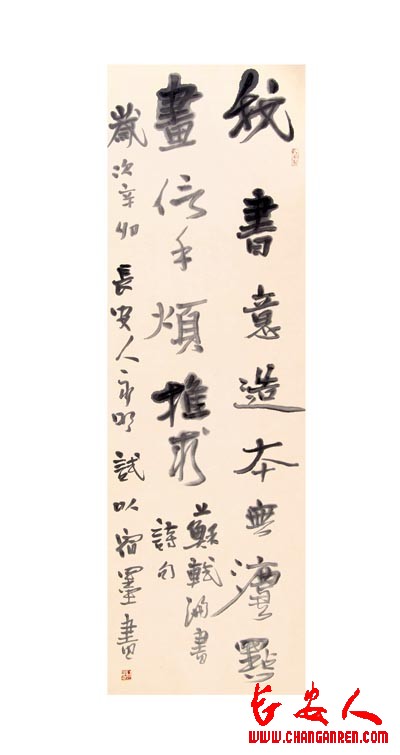 我書意造本無灋點
畫信手煩推求
蘇軾論書
詩句
歲次辛卯 長安人 試以宿墨書
长安人
WWW.CHANGANREN.COM